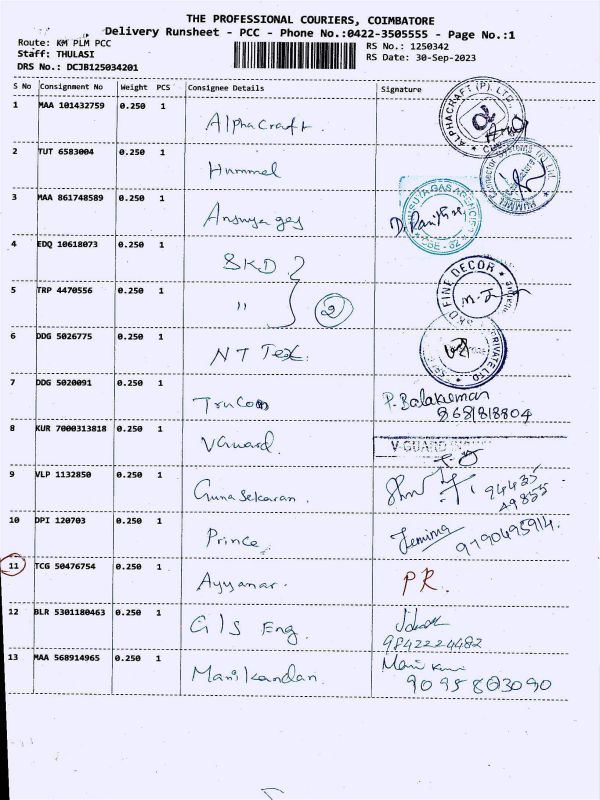 THE PROFESSIONAL COURIERS, COIMBATORE
Delivery Runsheet - PCC - Phone No.:0422-3505555 - Page No.:1
Route: KM PLM PCC RS No.: 1250342
Staff: THULASI RS Date: 30-Sep-2023
DRS No.: DCJB125034201
S No Consignment No Weight PCS Consignee Details Signature
1 MAA 101432759 0.250 1 Alphacraft. ALPHACRAFT (P). LTD.
2 TUT 6583004 0.250 1 Hummel
3 MAA 861748589 0.250 1 Ansuya gas GAS AGENCIES CBE - 62
4 EDQ 10618073 0.250 1 SKD
5 TRP 4470556 0.250 1 " 2 SKD FINE DECOR
6 DDG 5026775 0.250 1 NT Tex. PRIVATE LTD
7 DDG 5020091 0.250 1 P. Balakumar
8681818804
8 KUR 7000313818 0.250 1 VGuard. V-GUARD
9 VLP 1132850 0.250 1 Gunasekaran. 94435
49855
10 DPI 120703 0.250 1 Prince Jemima
9790495914.
11 TCG 50476754 0.250 1 Ayyanar. PR.
12 BLR 5301180463 0.250 1 G/S Eng.
9842224482
13 MAA 568914965 0.250 1 Manikandan. Mani